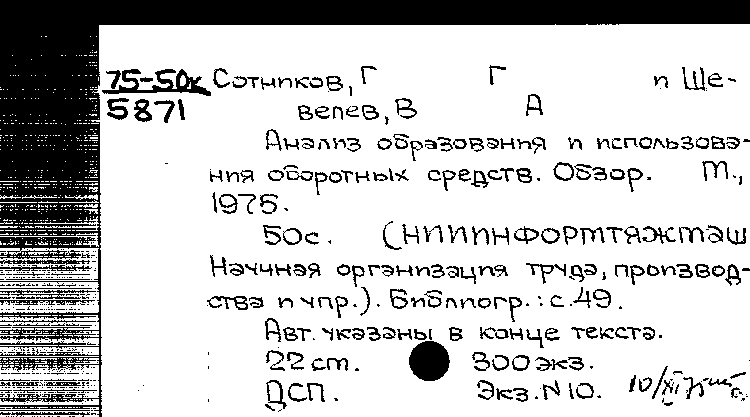 75-50к Сотников, Г Г и Ше-
5871 велев, В А
Анализ образования и использова-
ния оборотных средств. Обзор. М.,
1975.
50с. (НИИИНФОРМТЯЖМАШ
Научная организация труда, производ-
ства и упр.). Библиогр.: с.49.
Авт. указаны в конце текста.
22 см. 300 экз.
ДСП. Экз. N 10. 10/XI